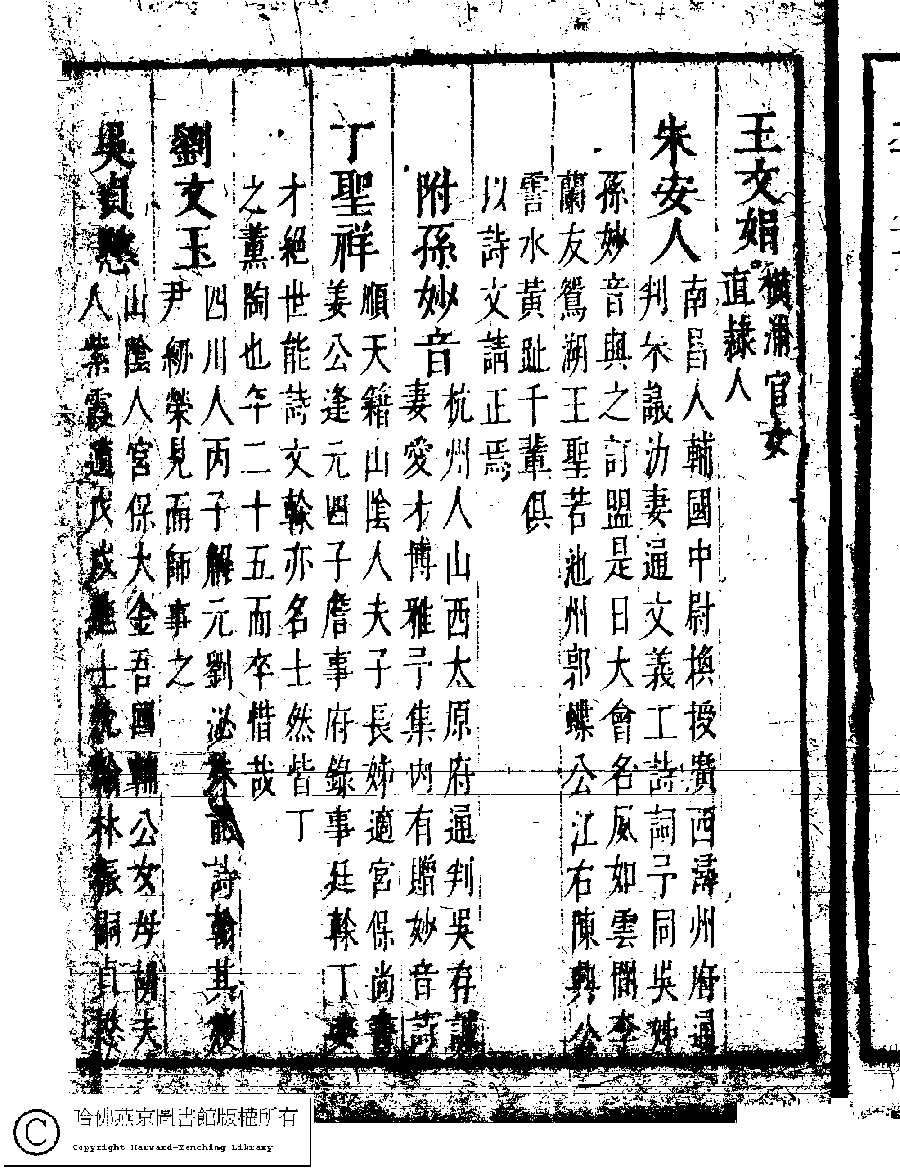 王文娟
橫浦官女
直隸人
朱安人
南昌人輔國中尉換授廣西潯州府通
判朱議汸妻通文義工詩詞予同吳姊
孫妙音與之訂盟是日大會名夙如雲間李
蘭友鴛湖王聖若池州郭蝶公江右陳興公
霅水黃趾千輩俱
以詩文請正焉
附孫妙音
杭州人山西太原府通判吳存謙
妻愛才博雅予集內有贈妙音詩
丁聖祥
順天籍山陰人夫子長姊適宮保尚書
姜公逢元四子詹事府錄事廷榦丁
才絕世能詩文榦亦名士然皆丁
之薰陶也年二十五而卒惜哉
劉文玉
四川人丙子解元劉泌妹 詩翰其嫂
尹紉榮見而師事之
吳貞愍
山陰人宮保大金吾國輔公女母胡夫
人紫霞適戊戌進士 翰林振嗣貞愍
哈佛燕京圖書館版權所有
Copyright Harvard-Yenching Library